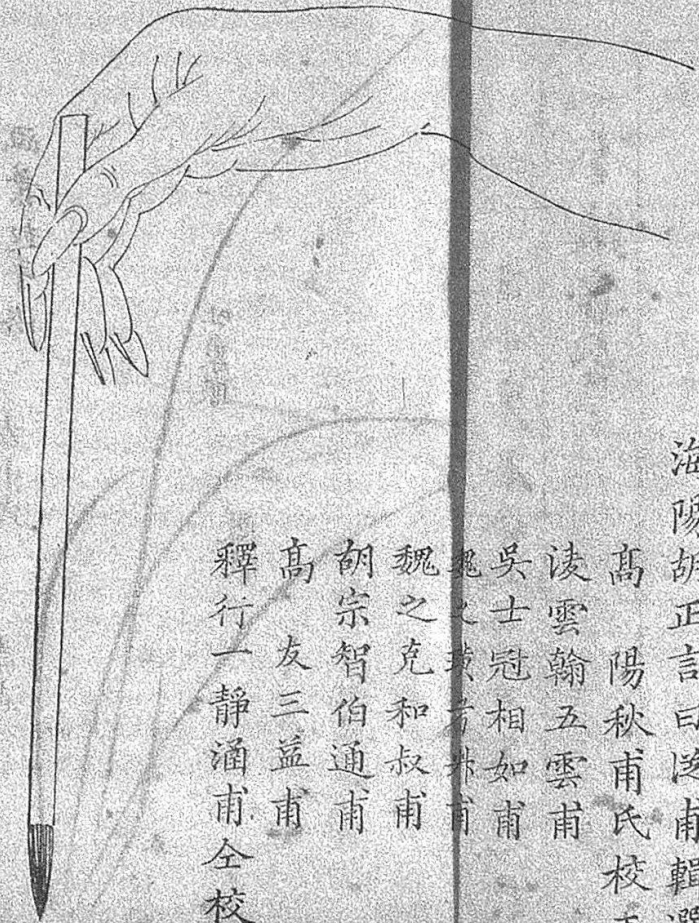 海陽胡正言曰從甫輯選
高陽秋甫氏校
凌雲翰五雲甫
吳士冠相如甫
魏之璜考叔甫
魏之克和叔甫
胡宗智伯通甫
高友三益甫
釋行一靜涵甫仝校